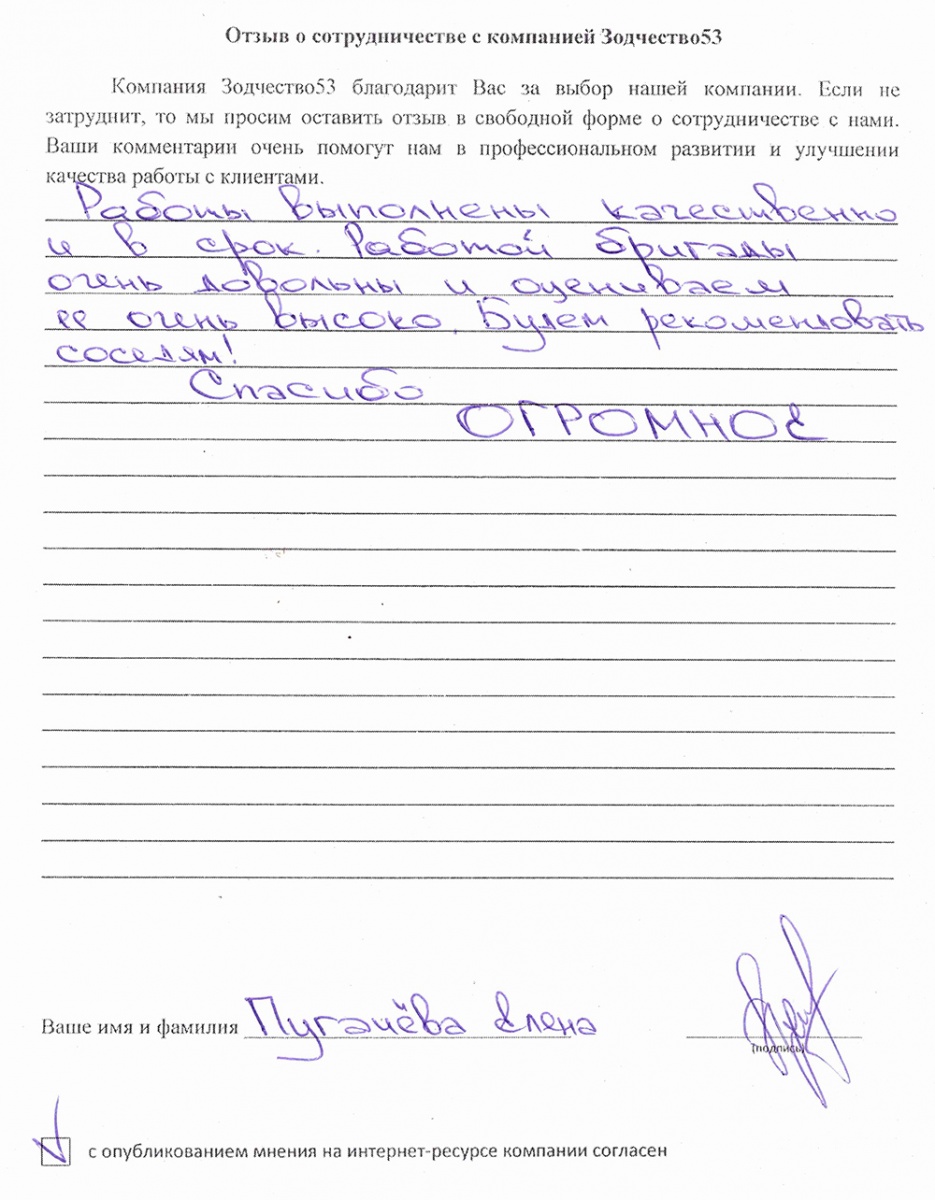 Отзыв о сотрудничестве с компанией Зодчество53
Компания Зодчество53 благодарит Вас за выбор нашей компании. Если не
затруднит, то мы просим оставить отзыв в свободной форме о сотрудничестве с нами.
Ваши комментарии очень помогут нам в профессиональном развитии и улучшении
качества работы с клиентами.
Работы выполнены качественно
и в срок. Работой бригады
очень довольны и оцениваем
ее очень высоко. Будем рекомендовать
соседям!
Спасибо
ОГРОМНОЕ
Ваше имя и фамилия Пугачёва Елена
(подпись)
с опубликованием мнения на интернет-ресурсе компании согласен